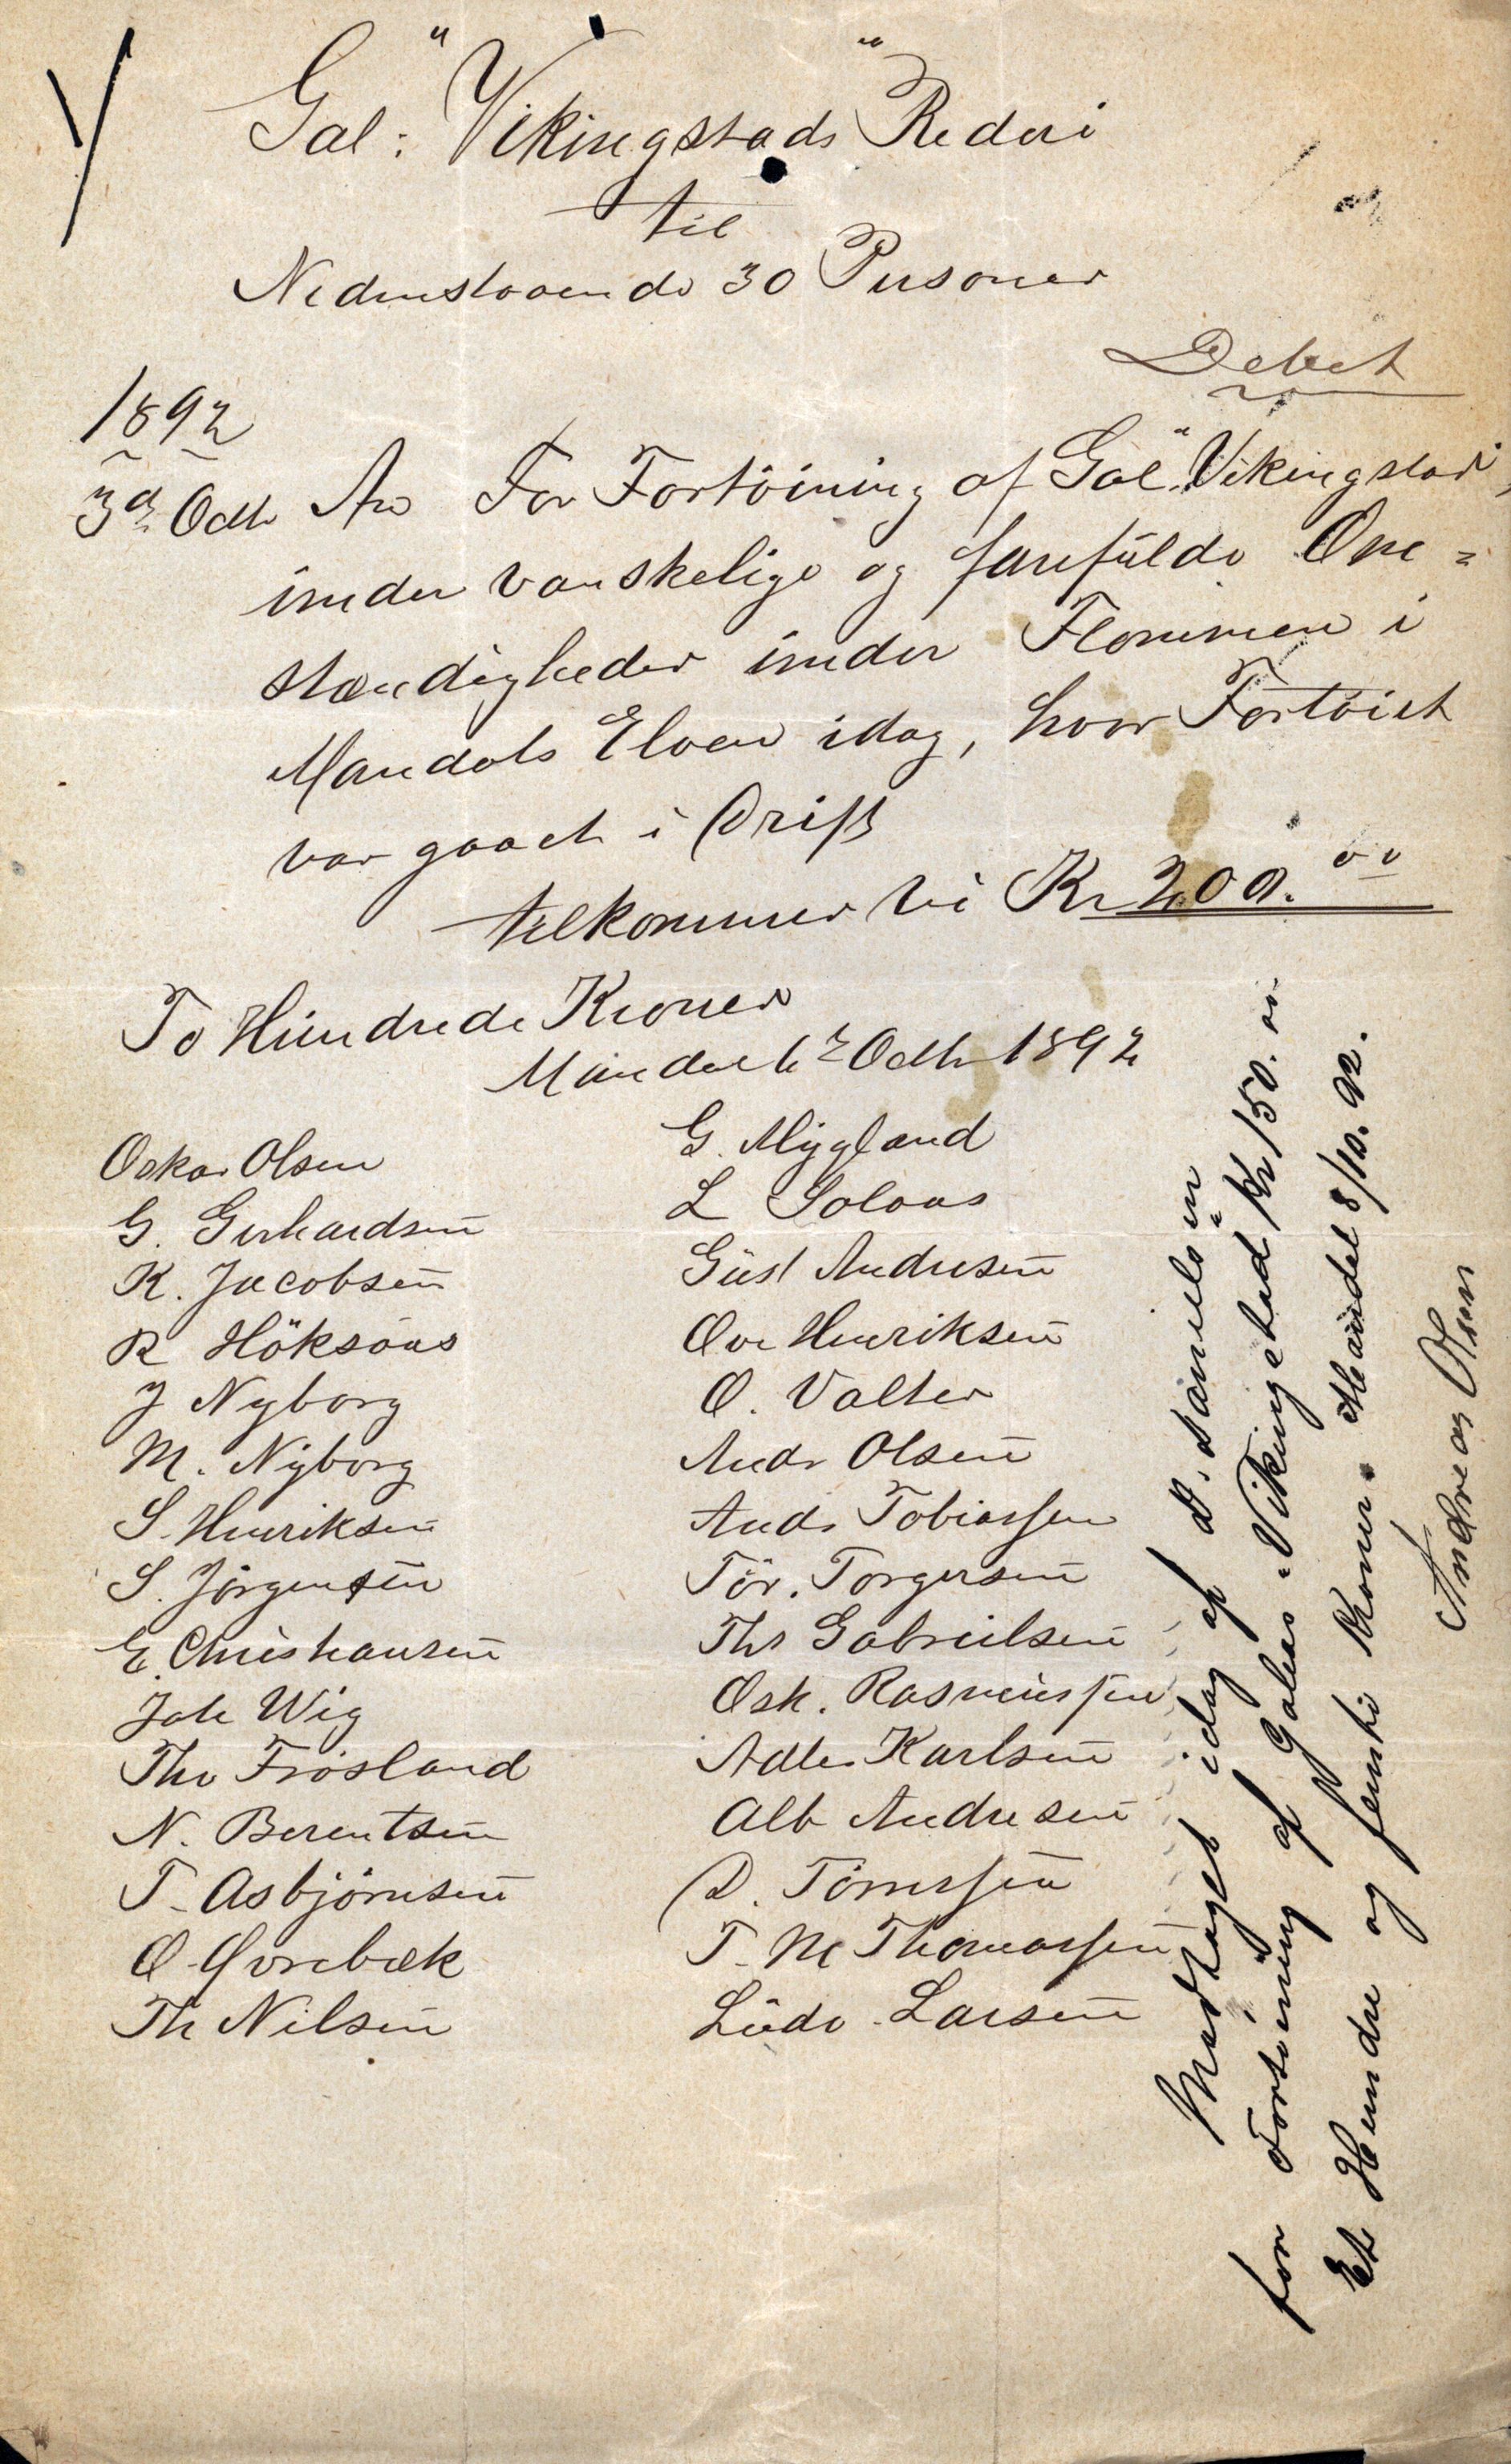 Gal: "Vikingstads" Rederi
til
Nedenstaaende 30 Personer
Debet
1892
3d Octbr An For Fortöining af Gal. "Vikingstad",
under vanskelige og farefulde Om=
stændigheder under Flommen i
Mandals Elven idag, hvor Fortöiet
var gaaet i Drift
tilkommer vi Kr 200.00
To Hundrede Kroner
Mandal Octbr 1892
Oskar Olsen
G. Gerhardsen
K. Jacobsen
R Höksaas
J Nyborg
M. Nyborg
S. Henriksen
S. Jörgensen
E. Christiansen
Joh Wig
Thv Frösland
N. Berentsen
T. Asbjörnsen
O.
Th Nilsen
G. Mygland
L Solaas
Gust Andresen
Ove Henriksen
O. Valter
Andr Olsen
Andr Tobiassen
Tör. Torgersen
Ths Gabrielsen
Osk. Rasmussen
Adler Karlsen
Alb Andresen
D. Tönnesen
T. M Thomassen
Ludv. Larsen
Modtaget idag af D. Danielsen
for Fortöining af Galeas "Vikingstad" Kr 150.00
Et Hundre og femti Kroner. Mandal 8/10.92.
Andreas Olsen